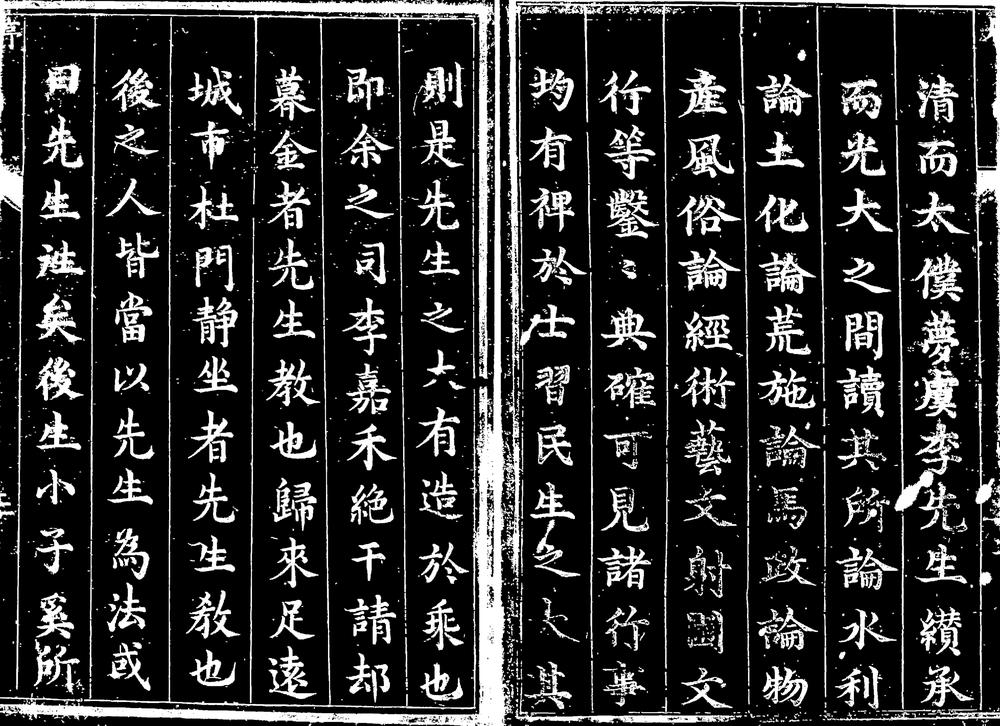 清而太僕夢虞李先生纉承
而光大之間讀其所論水利
論土化論荒施論馬政論物
產風俗論經術藝文射圃文
行等鑿〻典確可見諸行事
均有裨於士習民生之大其
則是先生之大有造於乘也
即余之司李嘉禾絶干請却
暮金者先生教也歸來足遠
城市杜門静坐者先生教也
後之人皆當以先生為法或
曰先生往矣後生小子奚所